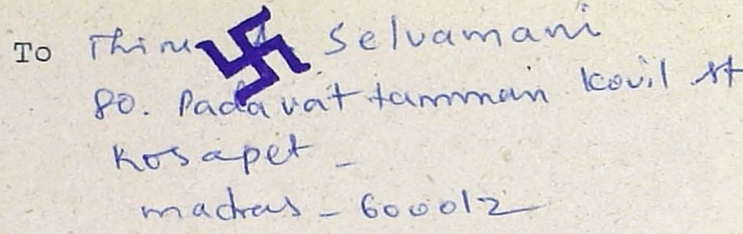 To Thiru A. Selvamani
80. Padavattamman Kovil st
Kosapet -
madras - 600012